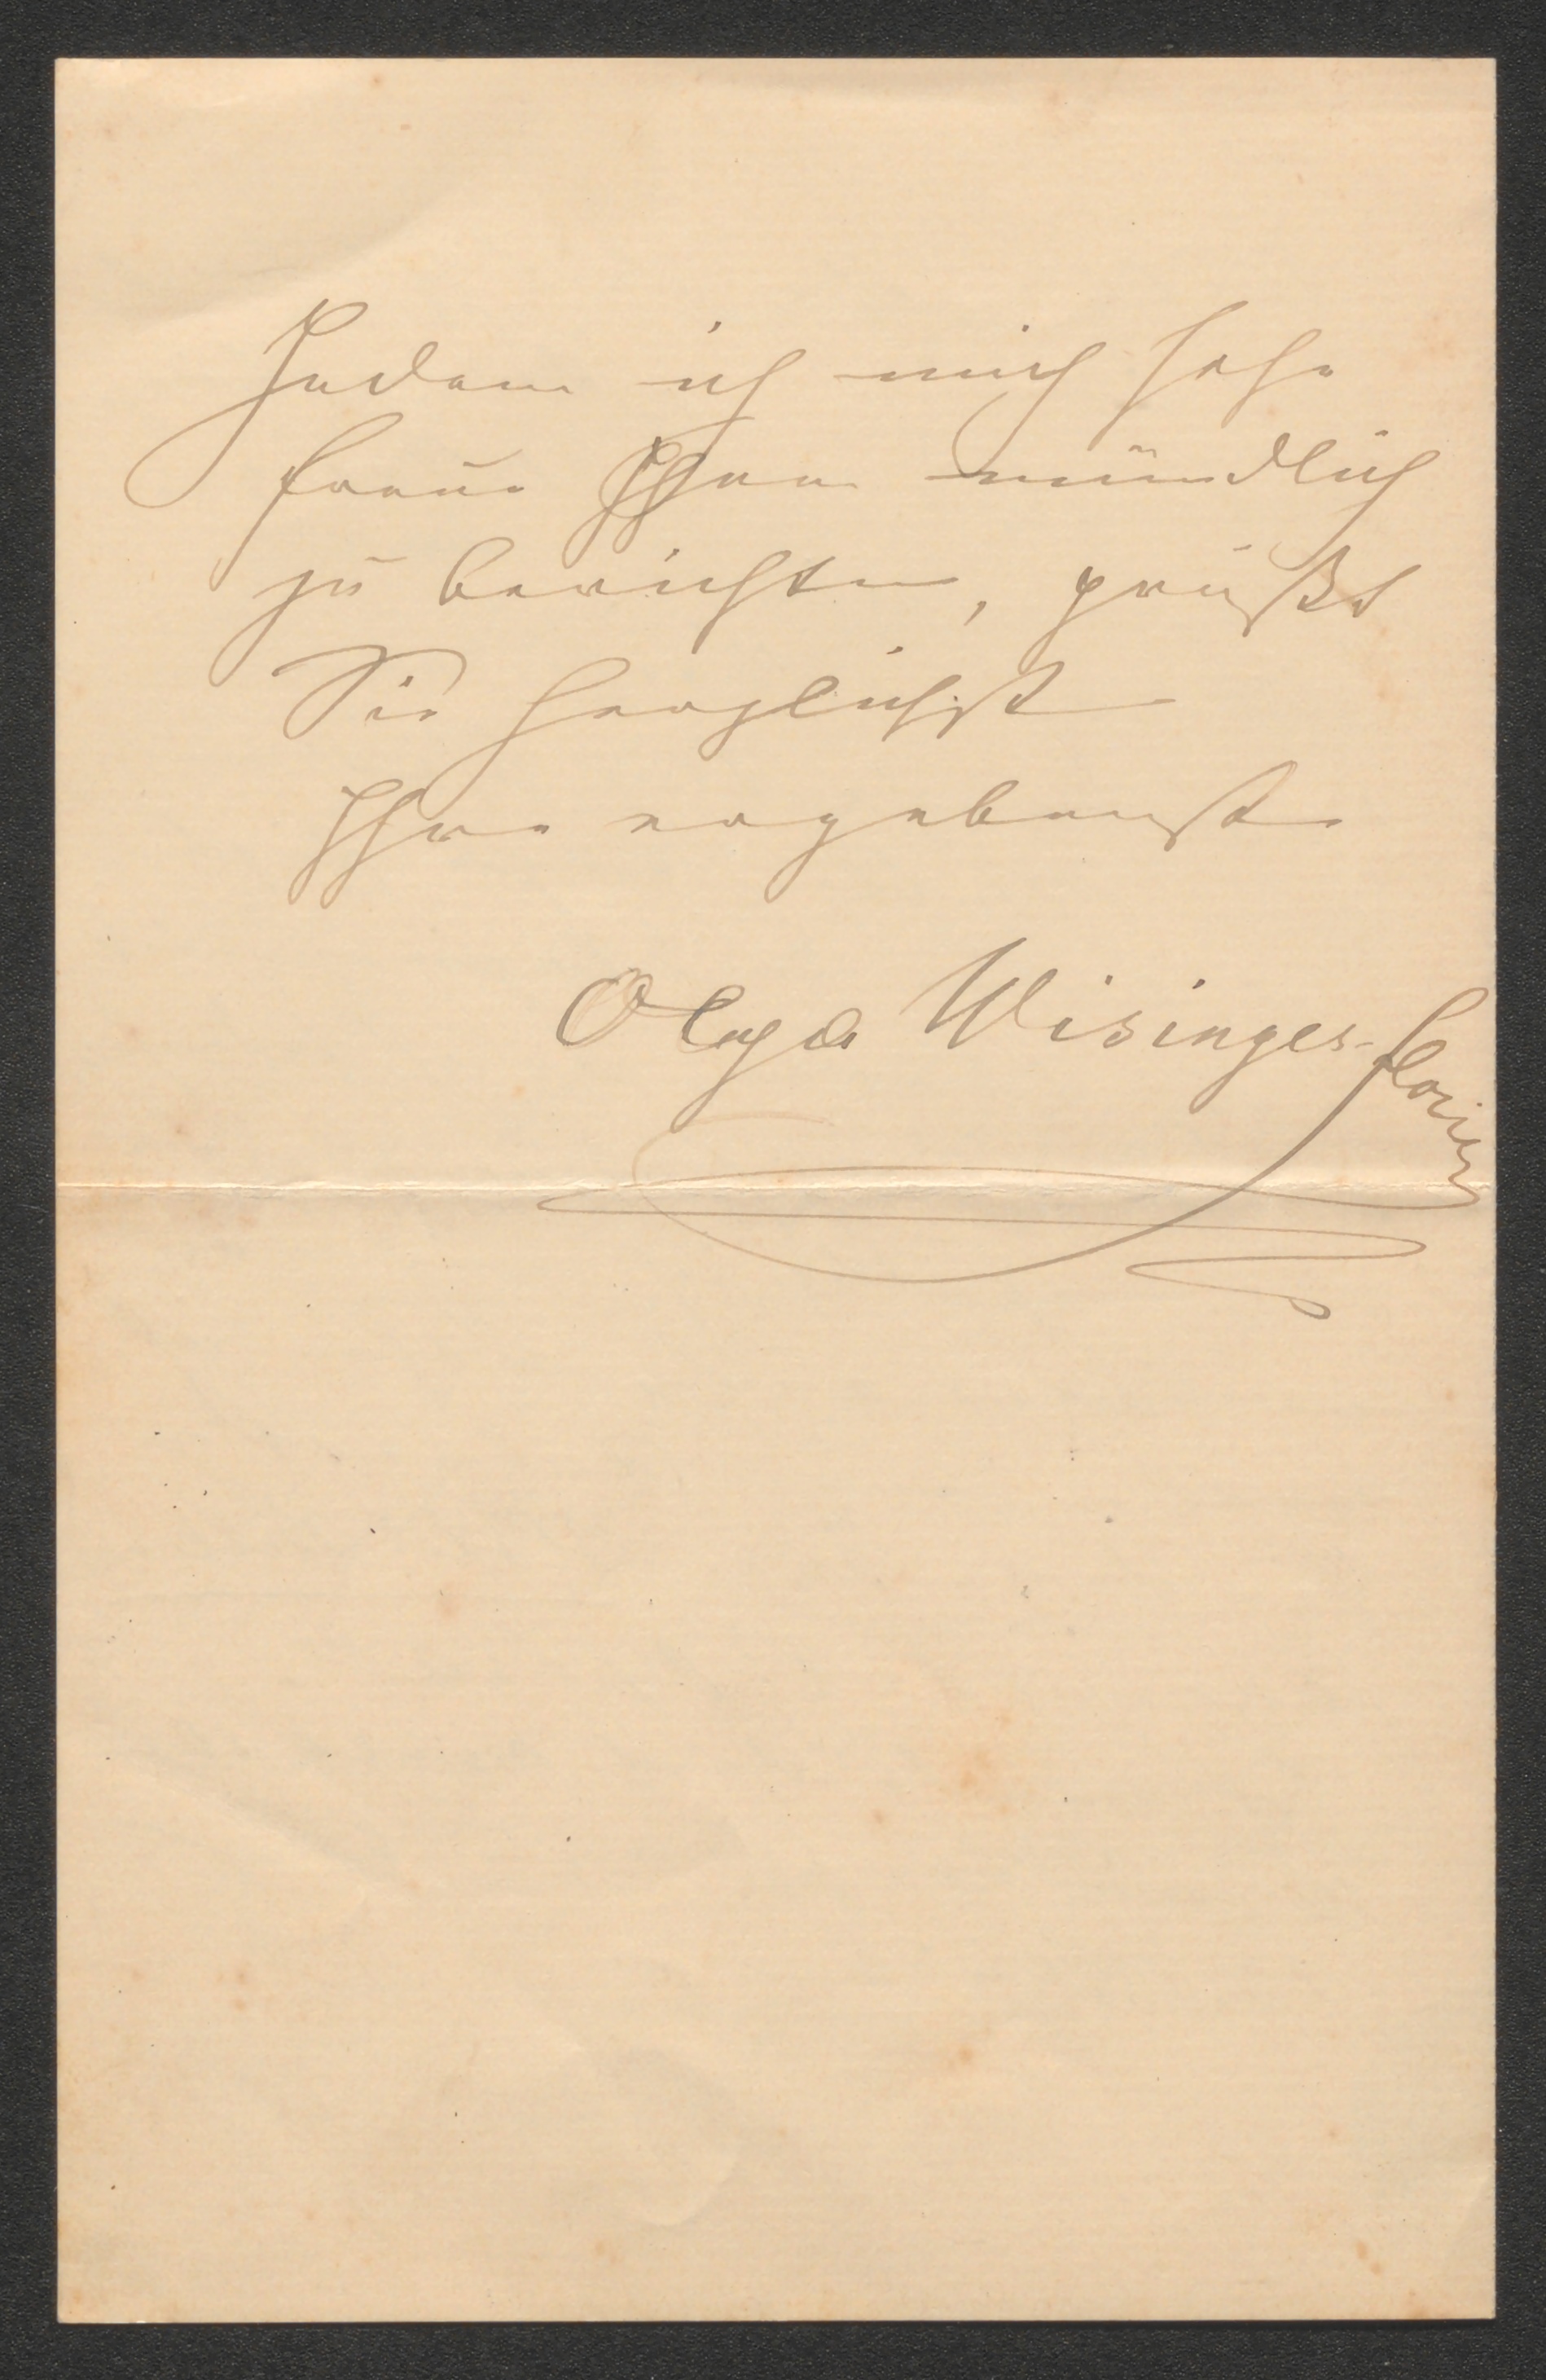 Indem ich mich sehr
freue Ihnen mündlich
zu berichten, grüßt
Sie herzlichst
Ihre ergebenste
Olga Wisinger-Florian